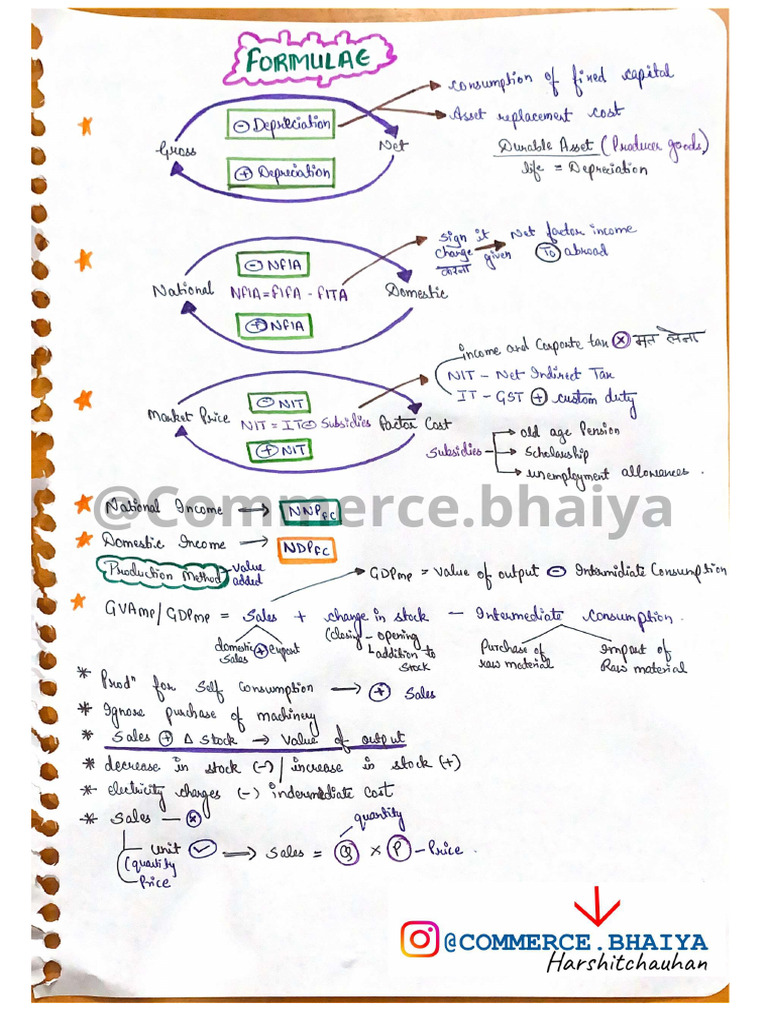 FORMULAE
consumption of fixed capital
Asset replacement cost
⊖ Depreciation
Gross
Net
Durable Asset (Producer goods)
life = Depreciation
⊕ Depreciation
Sign it change करना
given
Net factor income
To abroad
⊖ NFIA
National
NFIA = FIFA - FITA
Domestic
⊕ NFIA
income and Corporte tax ⊗ मत लेना
NIT - Net Indirect Tax
IT - GST ⊕ custom duty
⊖ NIT
Market Price
NIT = IT ⊖ Subsidies
factor Cost
⊕ NIT
Subsidies
old age Pension
Scholarship
unemployment allowances.
National Income → NNPFC
@Commerce.bhaiya
Domestic Income → NDPFC
Production Method - value added
GDPMP = value of output ⊖ Intermidiate Consumption
GVAMP/GDPMP = Sales + change in stock - Intermediate Consumption.
domestic sales ⊕ export
(closing - opening
addition to stock
Purchase of raw material
Import of Raw material
* Prodⁿ for self consumption → ⊕ Sales
* Ignore purchase of machinery
* Sales ⊕ Δ Stock → Value of output
* decrease in stock (-) / increase in stock (+)
* electricity charges (-) indermediate cost
* Sales - ⊗
quantity
unit ✓ → Sales = Q × P - Price.
(quantity
Price
@COMMERCE.BHAIYA
Harshitchauhan